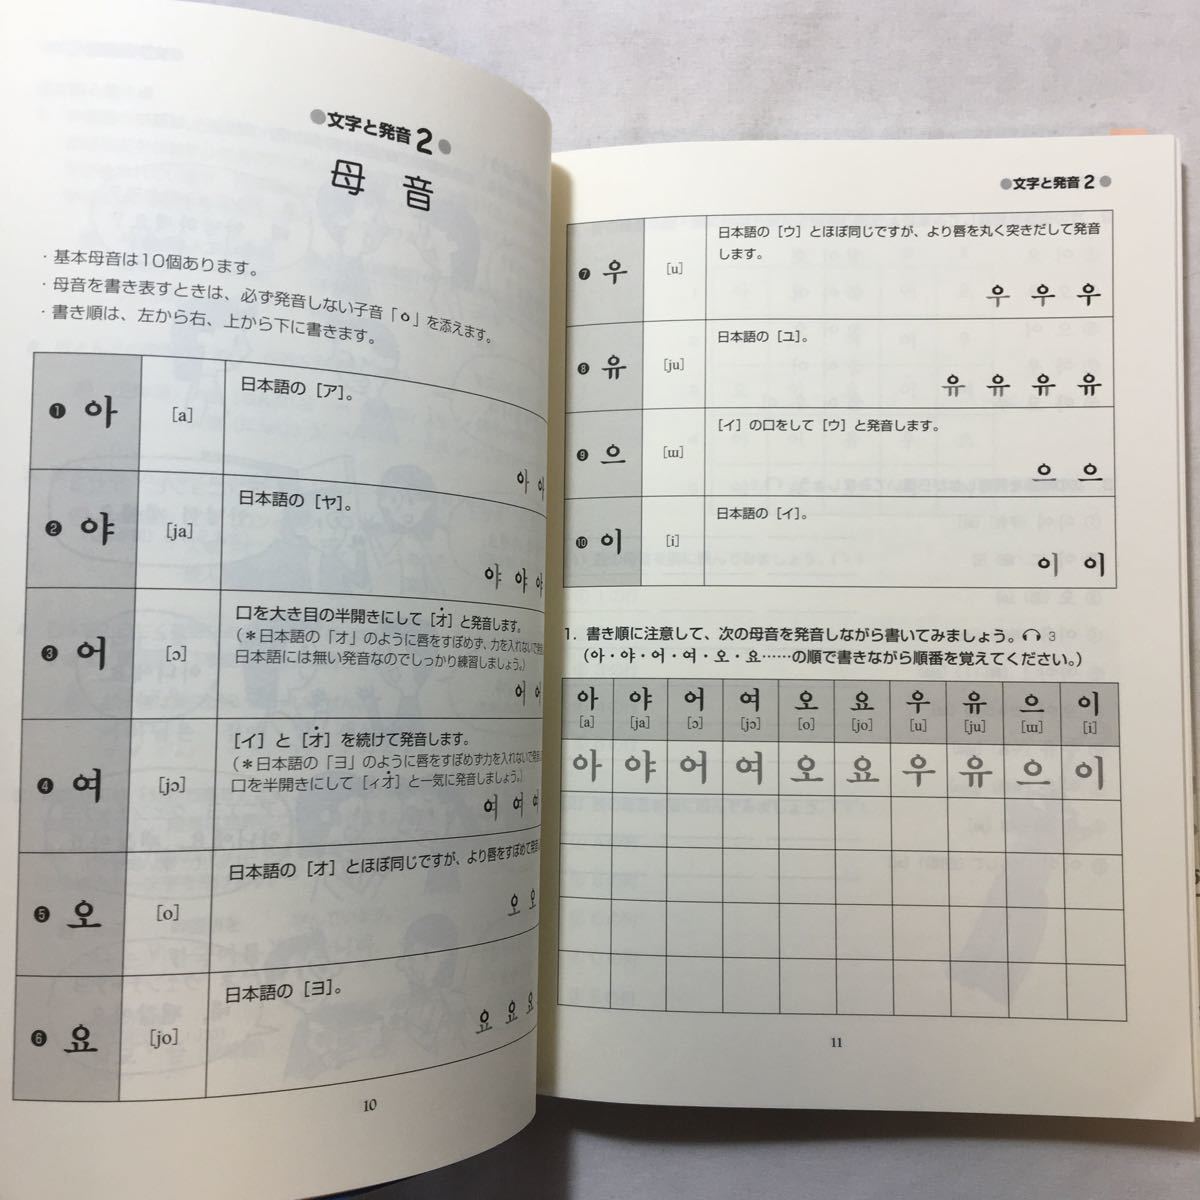 ●文字と発音 2●
母 音
・基本母音は10個あります。
・母音を書き表すときは、必ず発音しない子音「ㅇ」を添えます。
・書き順は、左から右、上から下に書きます。
❶ 아 [a] 日本語の［ア］。
아
❷ 야 [ja] 日本語の［ヤ］。
야 야 야
❸ 어 [ɔ] 口を大き目の半開きにして［オ］と発音します。
（＊日本語の「オ」のように唇をすぼめず、力を入れないで発
日本語には無い発音なのでしっかり練習しましょう。）
어 어
❹ 여 [jɔ] ［イ］と［オ］を続けて発音します。
（＊日本語の「ヨ」のように唇をすぼめず力を入れないで発
口を半開きにして［ィオ］と一気に発音しましょう。）
여 여 여
❺ 오 [o] 日本語の［オ］とほぼ同じですが、より唇をすぼめて発
오 오
❻ 요 [jo] 日本語の［ヨ］。
요 요 요
10
●文字と発音 2●
❼ 우 [u] 日本語の［ウ］とほぼ同じですが、より唇を丸く突きだして発音
します。
우 우 우
❽ 유 [ju] 日本語の［ユ］。
유 유 유 유
❾ 으 [ɯ] ［イ］の口をして［ウ］と発音します。
으 으
❿ 이 [i] 日本語の［イ］。
이 이
1. 書き順に注意して、次の母音を発音しながら書いてみましょう。 3
（아・야・어・여・오・요……の順で書きながら順番を覚えてください。）
아 야 어 여 오 요 우 유 으 이
[a] [ja] [ɔ] [jɔ] [o] [jo] [u] [ju] [ɯ] [i]
아 야 어 여 오 요 우 유 으 이
11